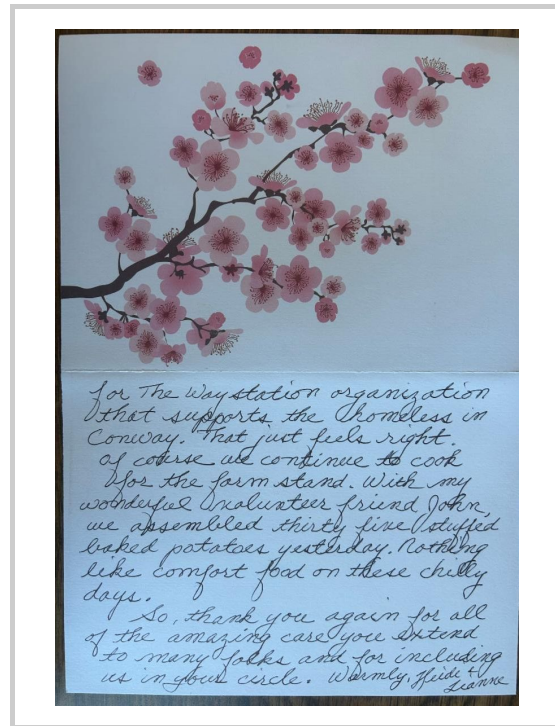 for The Way station organization
that supports the homeless in
Conway. That just feels right.
Of course we continue to cook
for the farm stand. With my
wonderful volunteer friend John,
we assembled thirty five stuffed
baked potatoes yesterday. Nothing
like comfort food on these chilly
days.
So, thank you again for all
of the amazing care you extend
to many folks and for including
us in your circle. Warmly, Heidi +
Leanne